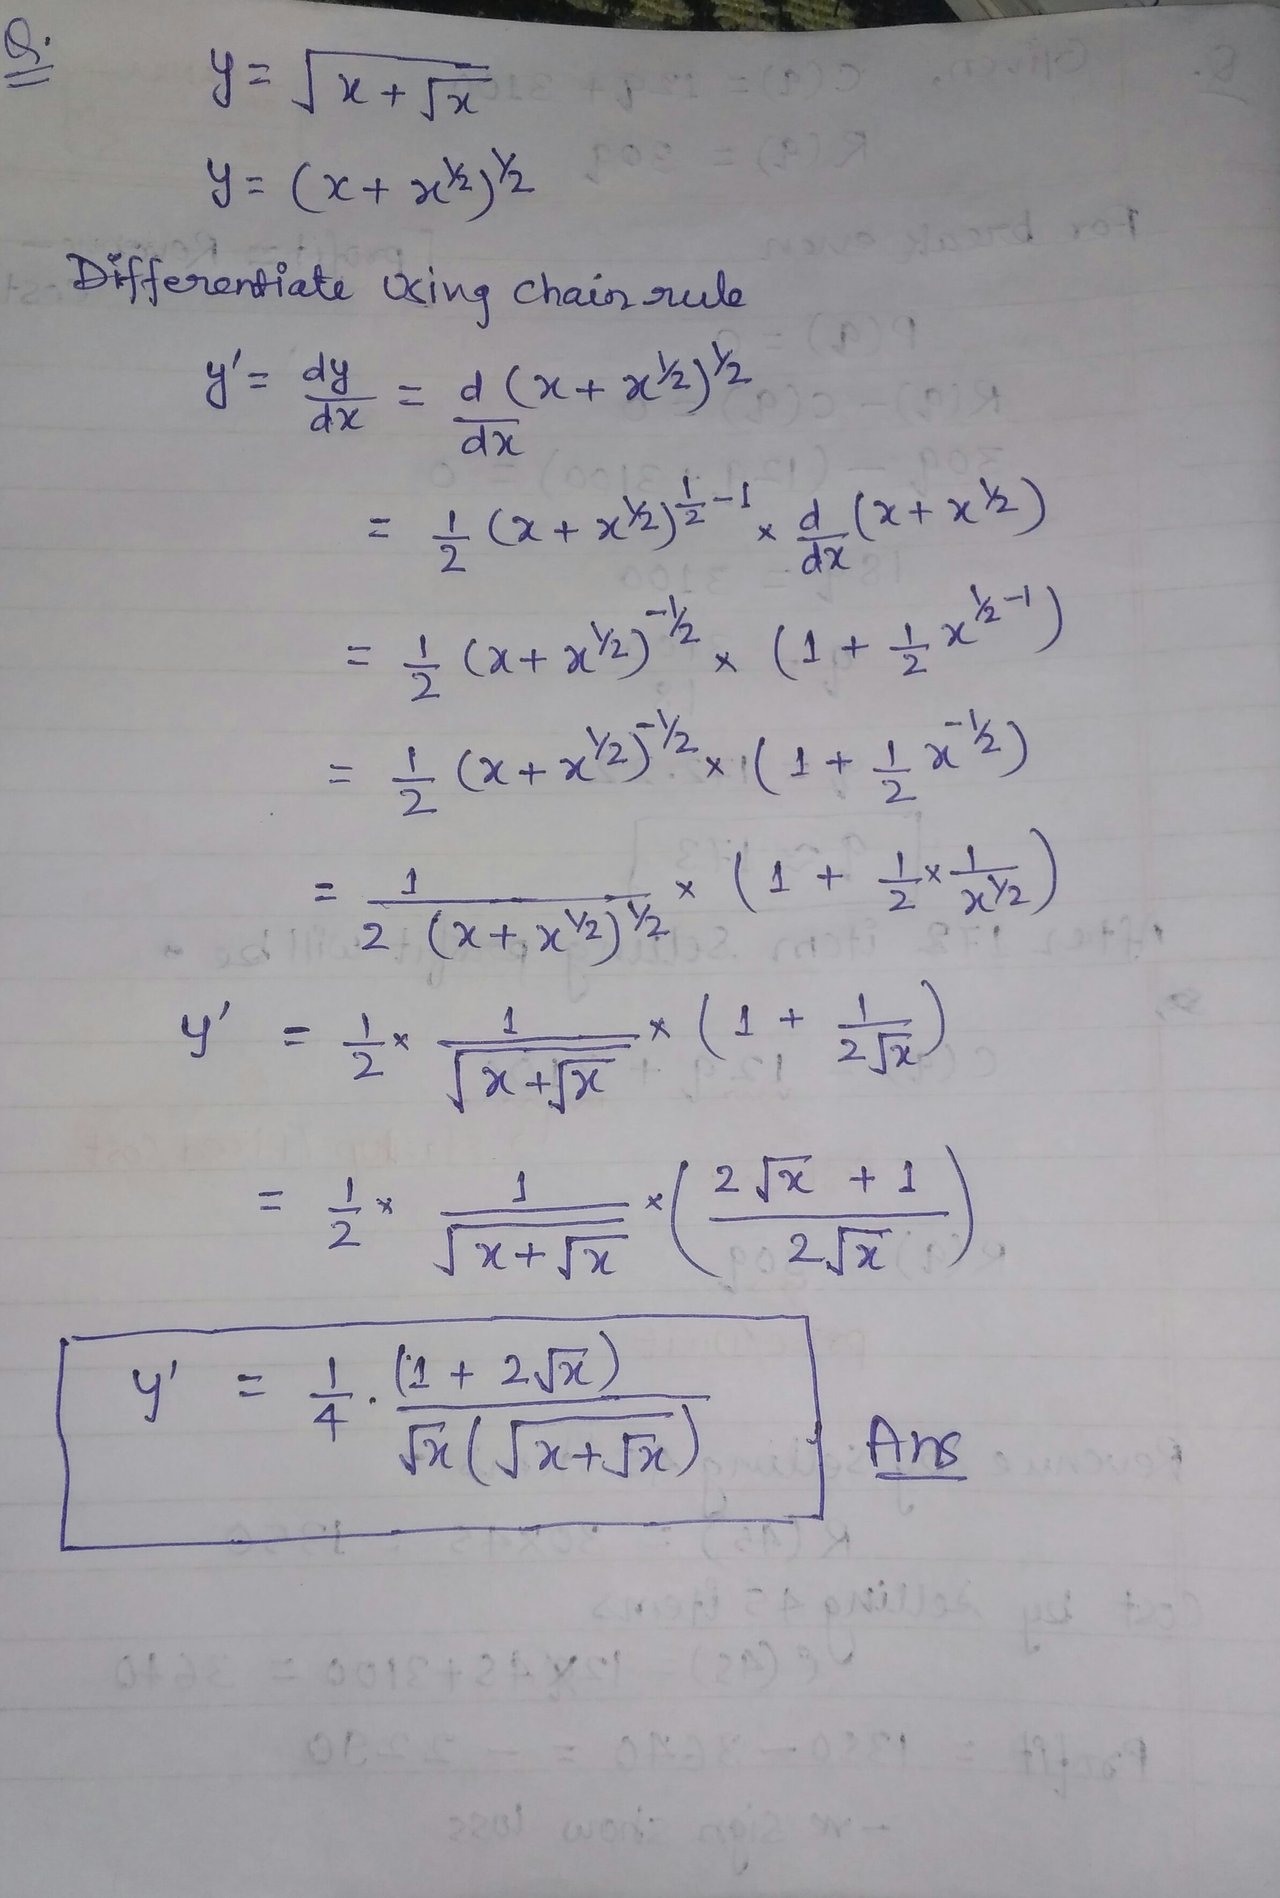 Q.
y = √(x + √x)
y = (x + x^½)^½
Differentiate using chain rule
y' = dy/dx = d/dx (x + x^½)^½
= 1/2 (x + x^½)^(1/2 - 1) × d/dx (x + x^½)
= 1/2 (x + x^½)^-½ × (1 + 1/2 x^(½-1))
= 1/2 (x + x^½)^-½ × (1 + 1/2 x^-½)
= 1/(2 (x + x^½)^½) × (1 + 1/2 × 1/x^½)
y' = 1/2 × 1/√(x + √x) × (1 + 1/(2√x))
= 1/2 × 1/√(x + √x) × ((2√x + 1)/(2√x))
y' = 1/4 · (1 + 2√x)/(√x (√(x + √x))) Ans